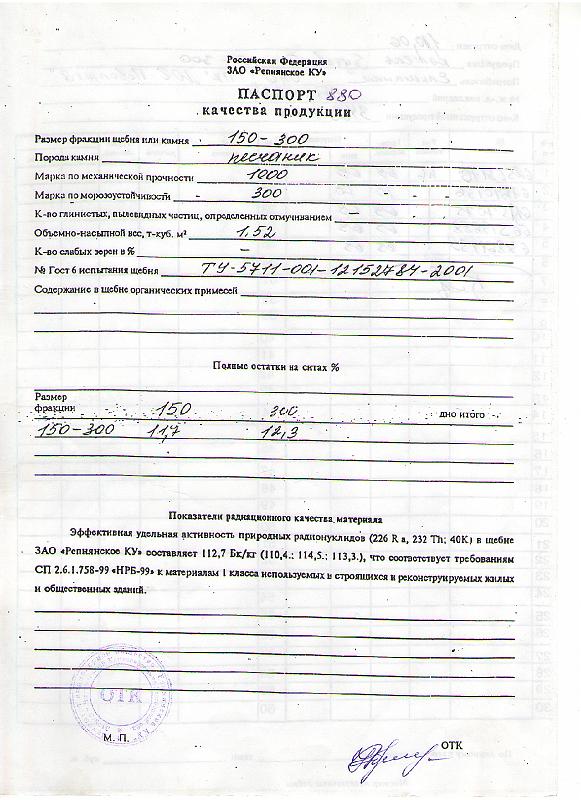 Российская Федерация
ЗАО «Репнянское КУ»
ПАСПОРТ 880
качества продукции
Размер фракции щебня или камня 150-300
Порода камня песчаник
Марка по механической прочности 1000
Марка по морозоустойчивости - 300 - -
К-во глинистых, пылевидных частиц, определенных отмучиванием —
Объемно-насыпной вес, т-куб. м² 1.52
К-во слабых зерен в % —
№ Гост 6 испытания щебня ТУ-5711-001-12152784-2001
Содержание в щебне органических примесей
Полные остатки на ситах %
Размер
фракции 150 300 дно итого
150-300 11,7 12,3
Показатели радиационного качества материала
Эффективная удельная активность природных радионуклидов (226 Ra, 232 Th; 40K) в щебне
ЗАО «Репнянское КУ» составляет 112,7 Бк/кг (110,4.; 114,5.; 113,3.), что соответствует требованиям
СП 2.6.1.758-99 «НРБ-99» к материалам 1 класса используемых в строящихся и реконструируемых жилых
и общественных зданий.
ОТК
М. П.
ОТК